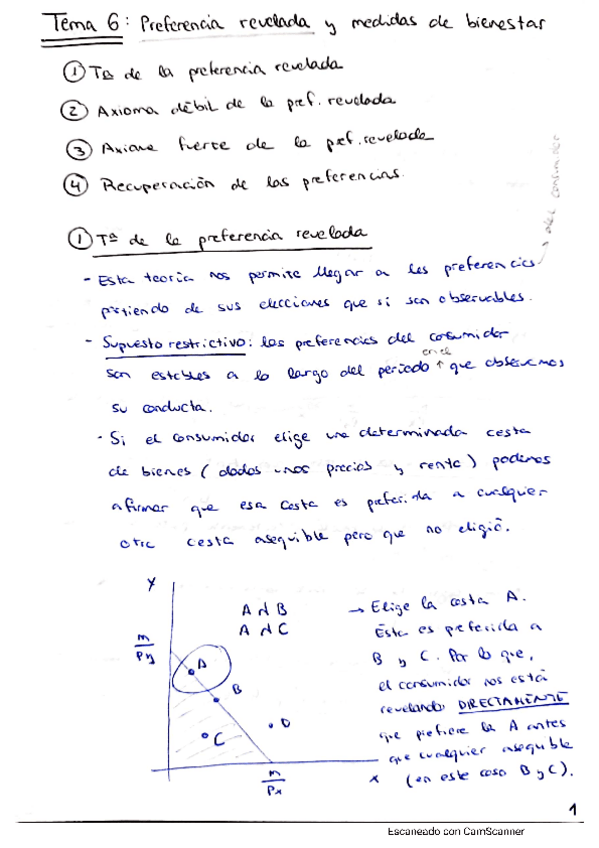 Tema 6: Preferencia revelada y medidas de bienestar
① Tª de la preferencia revelada
② Axioma débil de la pref. revelada
③ Axioma fuerte de la pref. revelada
④ Recuperación de las preferencias.
① Tª de la preferencia revelada
- Esta teoría nos permite llegar a las preferencias
→ del consumidor
partiendo de sus elecciones que si son observables.
- Supuesto restrictivo: las preferencias del consumidor
son estables a lo largo del periodo ↑ en el que observamos
su conducta.
- Si el consumidor elige una determinada cesta
de bienes (dados unos precios y renta) podemos
afirmar que esa cesta es preferida a cualquier
otra cesta asequible pero que no eligió.
Y
m
Py
A d B
A d C
A
B
C
D
m
Px
X
→ Elige la cesta A.
Ésta es preferida a
B y C. Por lo que,
el consumidor nos está
revelando DIRECTAMENTE
que prefiere la A antes
que cualquier asequible
(en este caso B y C).
1
Escaneado con CamScanner